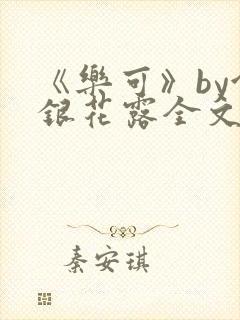 《樂可》by
銀花露全文
秦安琪